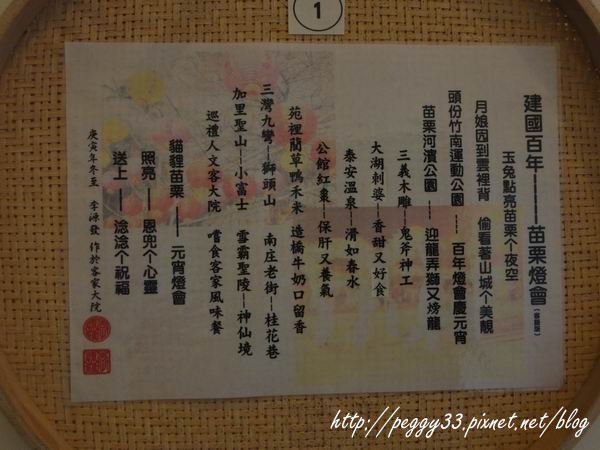 1
建國百年──苗栗燈會(客語版)
玉兔點亮苗栗个夜空
月娘囥到雲裡背 偷看著山城个美靚
頭份竹南運動公園 ---- 百年燈會慶元宵
苗栗河濱公園 ---- 迎龍弄獅又㷟龍
三義木雕─鬼斧神工
大湖刺婆─香甜又好食
泰安溫泉─滑如春水
公館紅棗─保肝又養氣
苑裡藺草鴨禾米 造橋牛奶口留香
三灣九彎─獅頭山 南庄老街─桂花巷
加里聖山─小富士 雪霸聖陵─神仙境
巡禮人文客大院 嚐食客家風味餐
貓貍苗栗 ── 元宵燈會
照亮 ── 恩兜个心靈
送上 ── 淰淰个祝福
庚寅年冬至 李源發 作於客家大院
http://peggy33.pixnet.net/blog